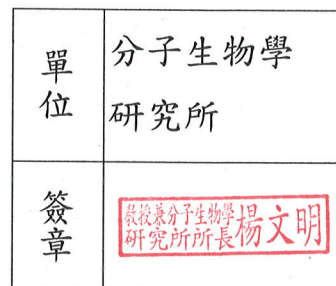 單位
分子生物學
研究所
簽章
教授兼分子生物學
研究所所長
楊文明